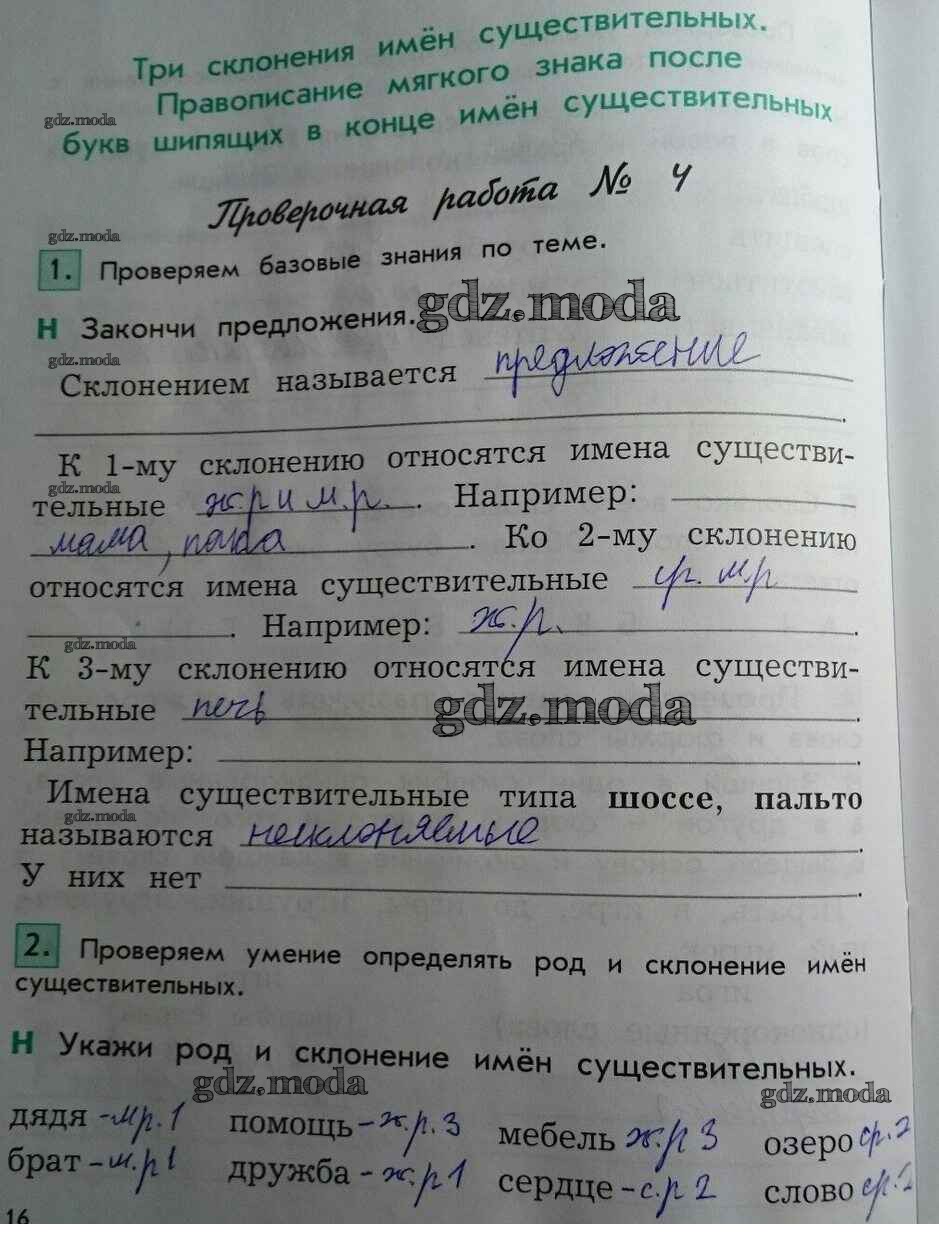 Три склонения имён существительных.
Правописание мягкого знака после
gdz.moda
букв шипящих в конце имён существительных
Проверочная работа № 4
gdz.moda
1. Проверяем базовые знания по теме.
gdz.moda
Н Закончи предложения.
gdz.moda
Склонением называется предложение
.
К 1-му склонению относятся имена существи-
gdz.moda
тельные ж.р и м.р. . Например:
мама, папа . Ко 2-му склонению
относятся имена существительные ср. м.р
. Например: ж.р. .
gdz.moda
К 3-му склонению относятся имена существи-
тельные печь .
gdz.moda
Например: .
Имена существительные типа шоссе, пальто
gdz.moda
называются несклоняемые .
У них нет .
2. Проверяем умение определять род и склонение имён
существительных.
Н Укажи род и склонение имён существительных.
gdz.moda gdz.moda
дядя - м.р. 1 помощь - ж.р. 3 мебель ж.р 3 озеро ср. 2
брат - м.р 1 дружба - ж.р 1 сердце - с.р 2 слово ср. 2
16